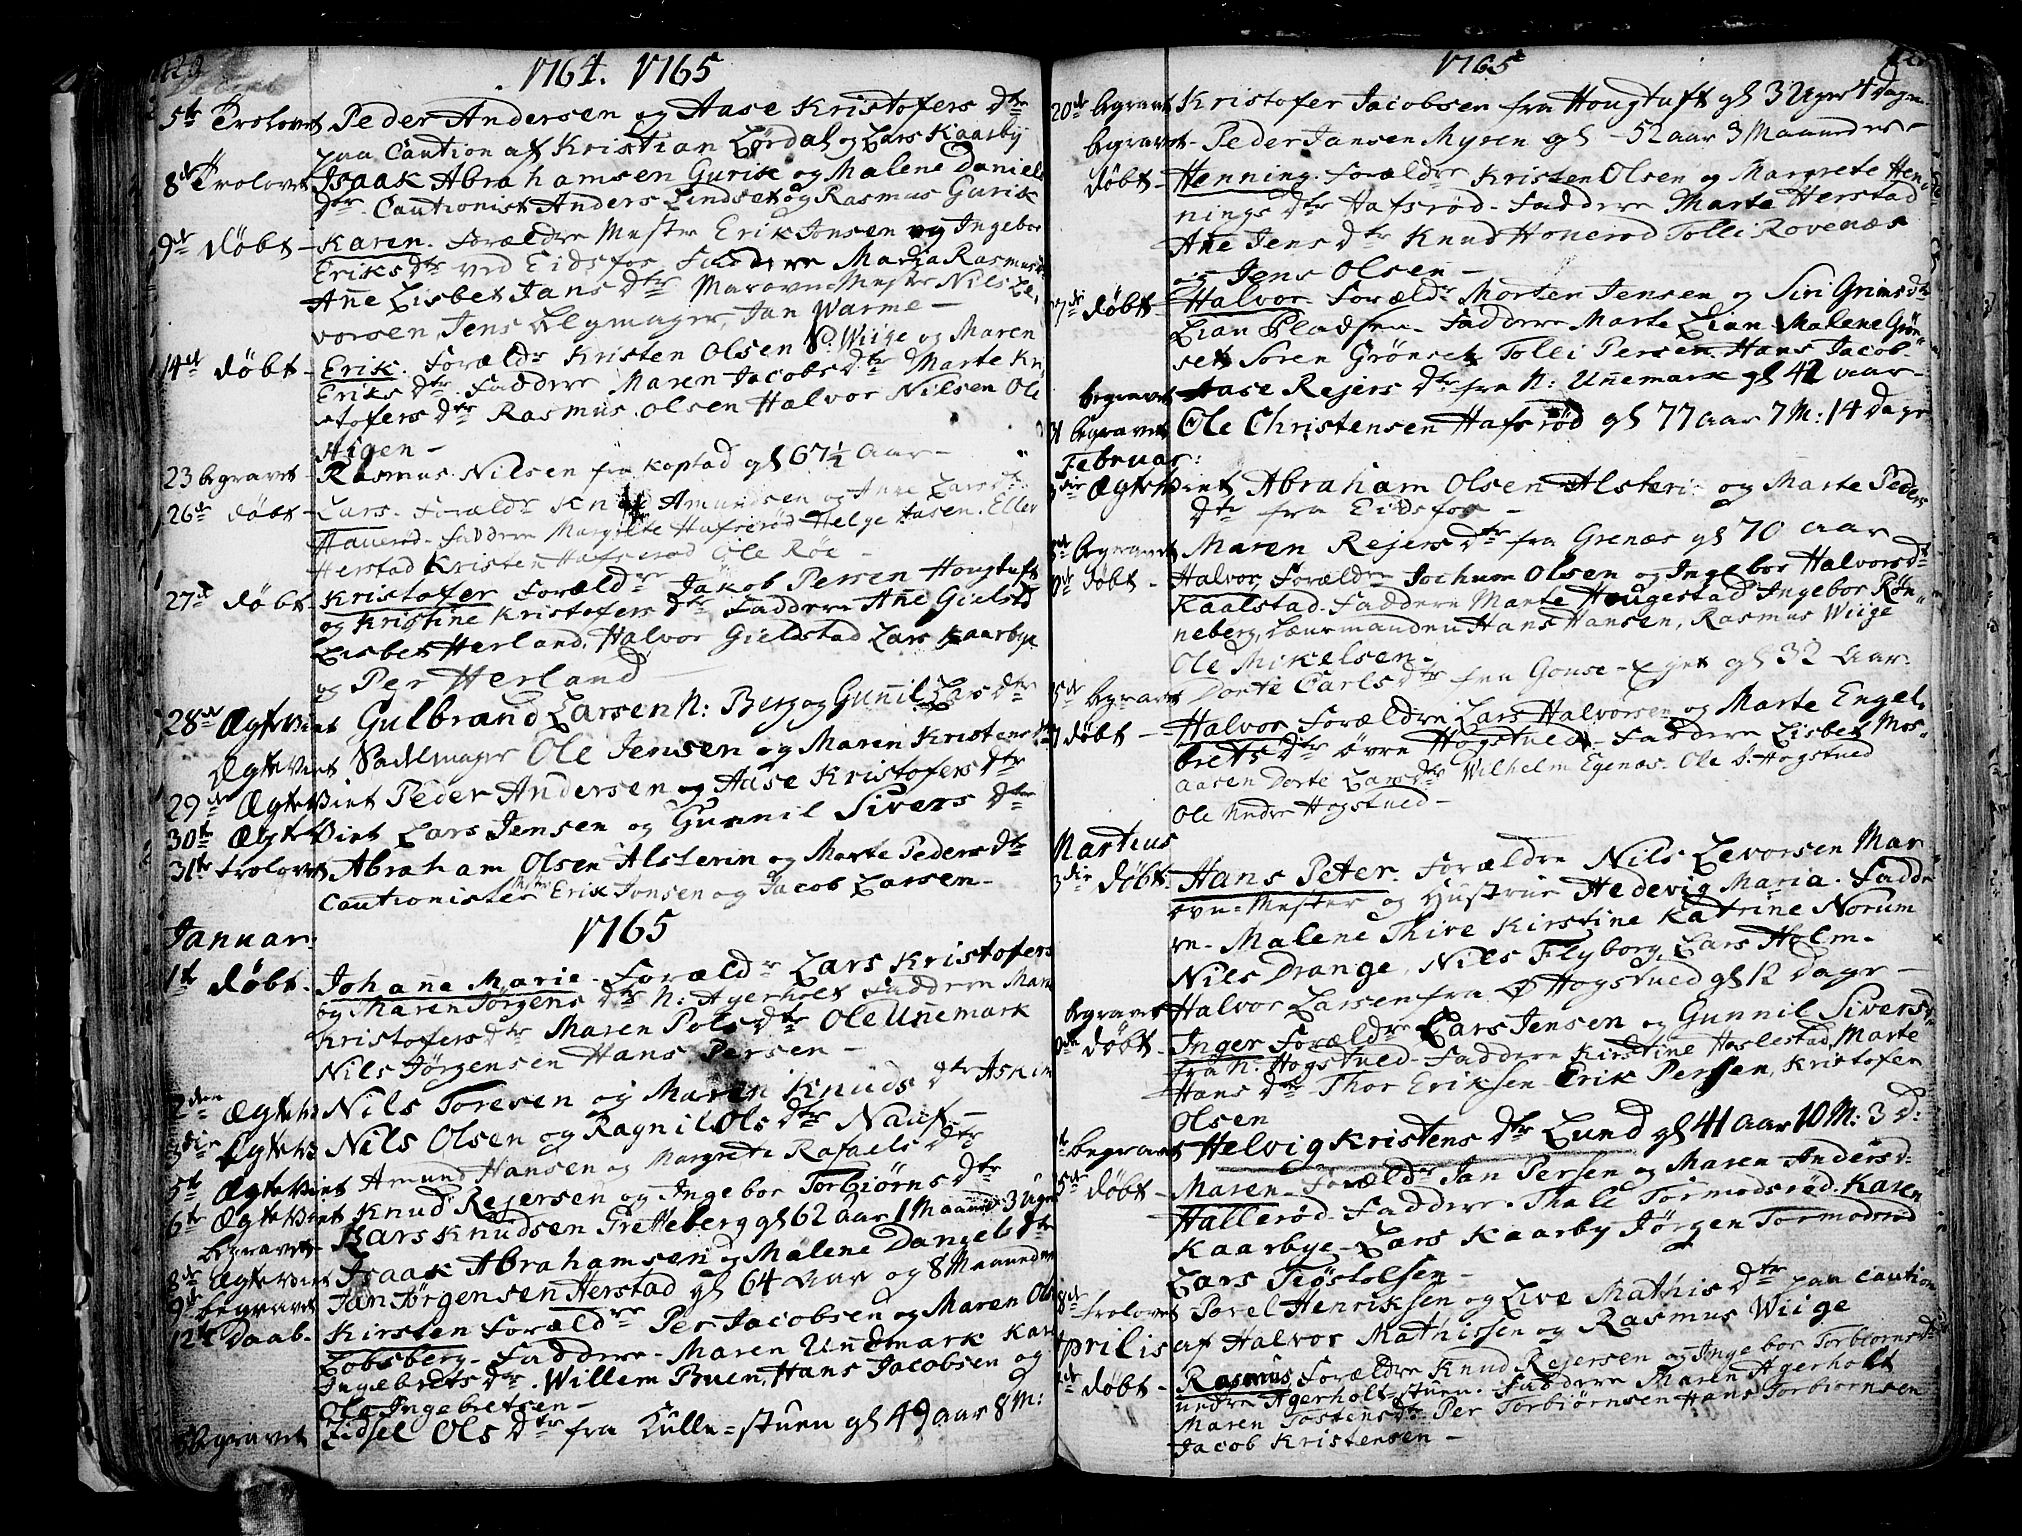 1764. 1765
5te Trolovet Peder Andersen og Aase Kristofers dtr
paa Caution af Kristian Lørdal og Lars Kaarby
8de Trolovet Isaak Abrahamsen Gurik og Malene Daniels
dtr Cautionist Anders Lindset og Rasmus Gurik
9de døbt Karen. Forældre Mester Erik Jonsen og Ingebor
Eriks dtr ved Eidsfos Faddere Maria Rasmus
Anne Lisbet Jans dtr Masovn-Mester Nils Le,
vorsen, Jens Belgmager, Jan Warme -
14de døbt - Erik. Foræld. Kristen Olsen Wiige og Maren
Eriks dtr. Faddere Maren Jacobs dtr Marte Kri
stofers dtr Rasmus Olsen Halvor Nilsen Ole
Higen -
23 begravet Rasmus Nilsen fra Kopstad gl 67 1/2 Aar -
26de døbt - Lars. Foræld. Knud Amundsen og Anne Lars dtr
Hauerød. Faddere Margrete Hafsrød Helge Aasen. Eller
Herstad Kristen Hafserød Ole Røe -
27de døbt - Kristofer Foræld. Jakob Persen Hougtuft
og Kristine Kristofers dtr Faddere Anne Gielstd
Lisbet Herland, Halvor Gieldstad Lars Kaarbye
og Per Herland -
28de ÆgteViet Gulbrand Larsen N: Berg og Gunnil Lars dtr
ÆgteViet Sadlmager Ole Jensen og Maren Kristens dtr
29de ÆgteViet Peder Andersen og Aase Kristofers dtr
30te ÆgteViet Lars Jensen og Gunnil Sivers dtr
31te trolovet Abraham Olsen Alsterin og Marte Peders dtr
Cautionister Mster Erik Jonsen og Jacob Larsen -
Januar: 1765
1te døbt. Johanne Marie - Foræld. Lars Kristofers
og Maren Jørgens dtr N: Agerholt Faddere Mari
Kristofers dtr Maren Pols dtr Ole Unnemark
Nils Jørgensen Hans Persen -
2den Ægtevi Nils Toresen og Maren Knuds dtr Askim
3die ÆgteVi Nils Olsen og Ragnil Ols dtr Nauf -
5te ÆgteViet Amund Hansen og Margrete Rafaels dtr
6te ÆgteViet Knud Rejersen og Ingebor Torbiørns dtr
begravet - Lars Knudsen Pretteberg gl 62 aar 1 Maaned 3 Uger
8de ÆgteViet Isaak Abrahamsen og Malene Daniels dtr
9de begravet Jan Jørgensen Herstad gl 64 Aar og 8 Maaneder
12te Daab. Kirsten Foræld. Per Jacobsen og Maren Ols
Lobsberg - Faddere - Maren Undmark Kari
Ingebrets dtr. Willem Buen, Hans Jacobsen og
Ole Ingebretsen -
Begravet Zidsel Ols dtr fra Lille-stuen gl 49 aar 8 M:
1765
20de begravet Kristofer Jacobsen fra Hougtuft gl 3 Uger 4 dage
begravet - Peder Jansen Myren gl - 52 aar 3 Maaneder -
døbt - Henning. Forældre Kristen Olsen og Margrete Hen
nings dtr Hafsrød - Faddere Marte Herstad
Ane Jens dtr Knud Honerød Tolli Rovenæs
og Jens Olsen -
27de døbt Halvor Foræld. Morten Jensen og Siri Grims dtr
Lian Pladsen - Faddere Marte Lian Malene Grøn
set Søren Grønset Tolli Persen Hans Jacob.
begravet Aase Rejers dtr fra N: Unnemark gl 42 aar -
31 begravet Ole Christensen Hafsrød gl 77 aar 7 M: 14 dage
Februar:
3die ÆgteViet Abraham Olsen Alsterin og Marte Peders
dtr fra Eidsfos -
begravet Maren Rejers dtr fra Grenæs gl 70 aar
døbt - Halvor Foræld. Jochum Olsen og Ingebor Halvors dtr
Kaalstad. Faddere Marte Hougestad Ingebor Røn-
neberg, Lænsmanden Hans Hansen, Rasmus Wiige
Ole Mikelsen -
begravet Dorte Carls dtr fra Gouse-Ejet gl 32 Aar.
døbt - Halvor Forældre Lars Halvorsen og Marte Engel.
brets dtr øvre Hogstued - Faddere Lisbet Mos-
aasen Dorte Lars dtr Wilhelm Egenæs. Ole S: Hogstued
Ole Nedre Hogstued -
Martius
3die døbt. Hans Peter. Forældre Nils Levorsen Mas
ovn-Mester og Hustrue Hedevig Maria. Fadde
re - Malene Thive Kirstine Katrine Norum
Nils Drange, Nils Flyborg, Lars Holm -
begravet Halvor Larsen fra Ø Hogstued gl 12 Dage -
døbt - Inger Foræld. Lars Jensen og Gunnil Sivers dtr
fra N: Hogstued - Faddere Kirstine Haslestad, Marte
Hans dtr - Thor Eriksen Erik Persen, Kristofer
Olsen
begravet Helvig Kristens dtr Lund gl 41 aar 10 M: 3 D:
døbt - Maren - Foræld. Jan Persen og Maren Anders d-
Hallerød. Faddere - Thali Tormodsrød. Karen
Kaarbye - Lars Kaarby Jørgen Tormodsrød
Lars Tiøstolsen -
trolovet Povel Henriksen og Live Mathis dtr paa caution
af Halvor Mathissen og Rasmus Wiige
Aprilis
døbt - Rasmus Forældre Knud Rejersen og Ingebor Torbiørns dtr
nedre Agerholt-stuen. Faddere Maren Agerholt
Maren Tostens dtr Per Torbiørnsen Hans Torbiørnsen
Jacob Kristensen -